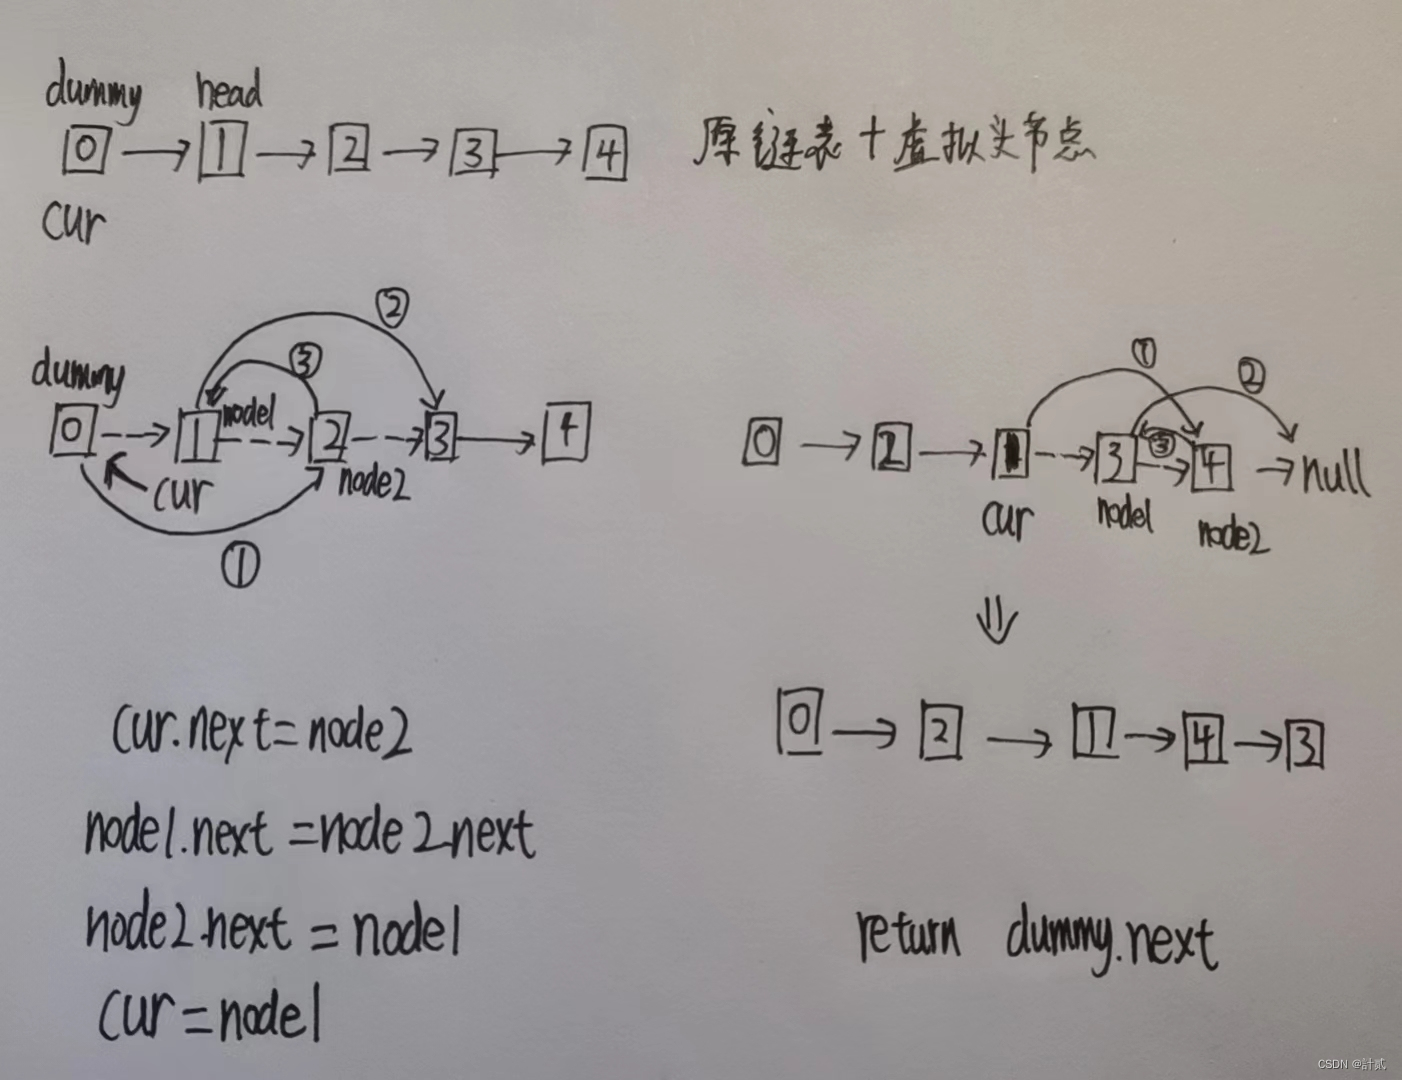 dummy head
0 → 1 → 2 → 3 → 4 原链表+虚拟头节点
cur
②
③
dummy
0 1 node1 2 3 4
cur node2
①
① ②
0 → 2 → 1 3 ③ 4 → null
cur node1 node2
⇓
0 → 2 → 1 → 4 → 3
cur.next=node2
node1.next=node2.next
node2.next=node1
cur=node1
return dummy.next
CSDN @計贰